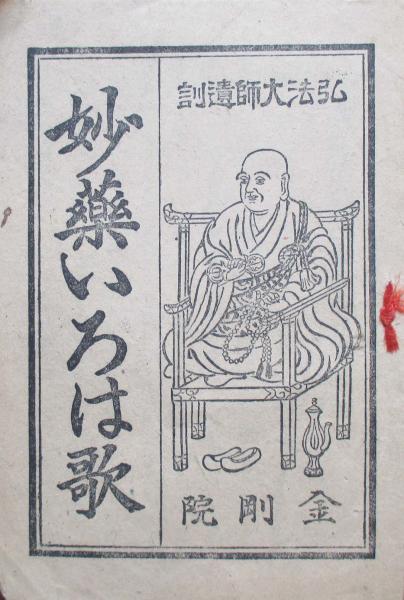 弘法大師遺訓
妙藥いろは歌
金剛院